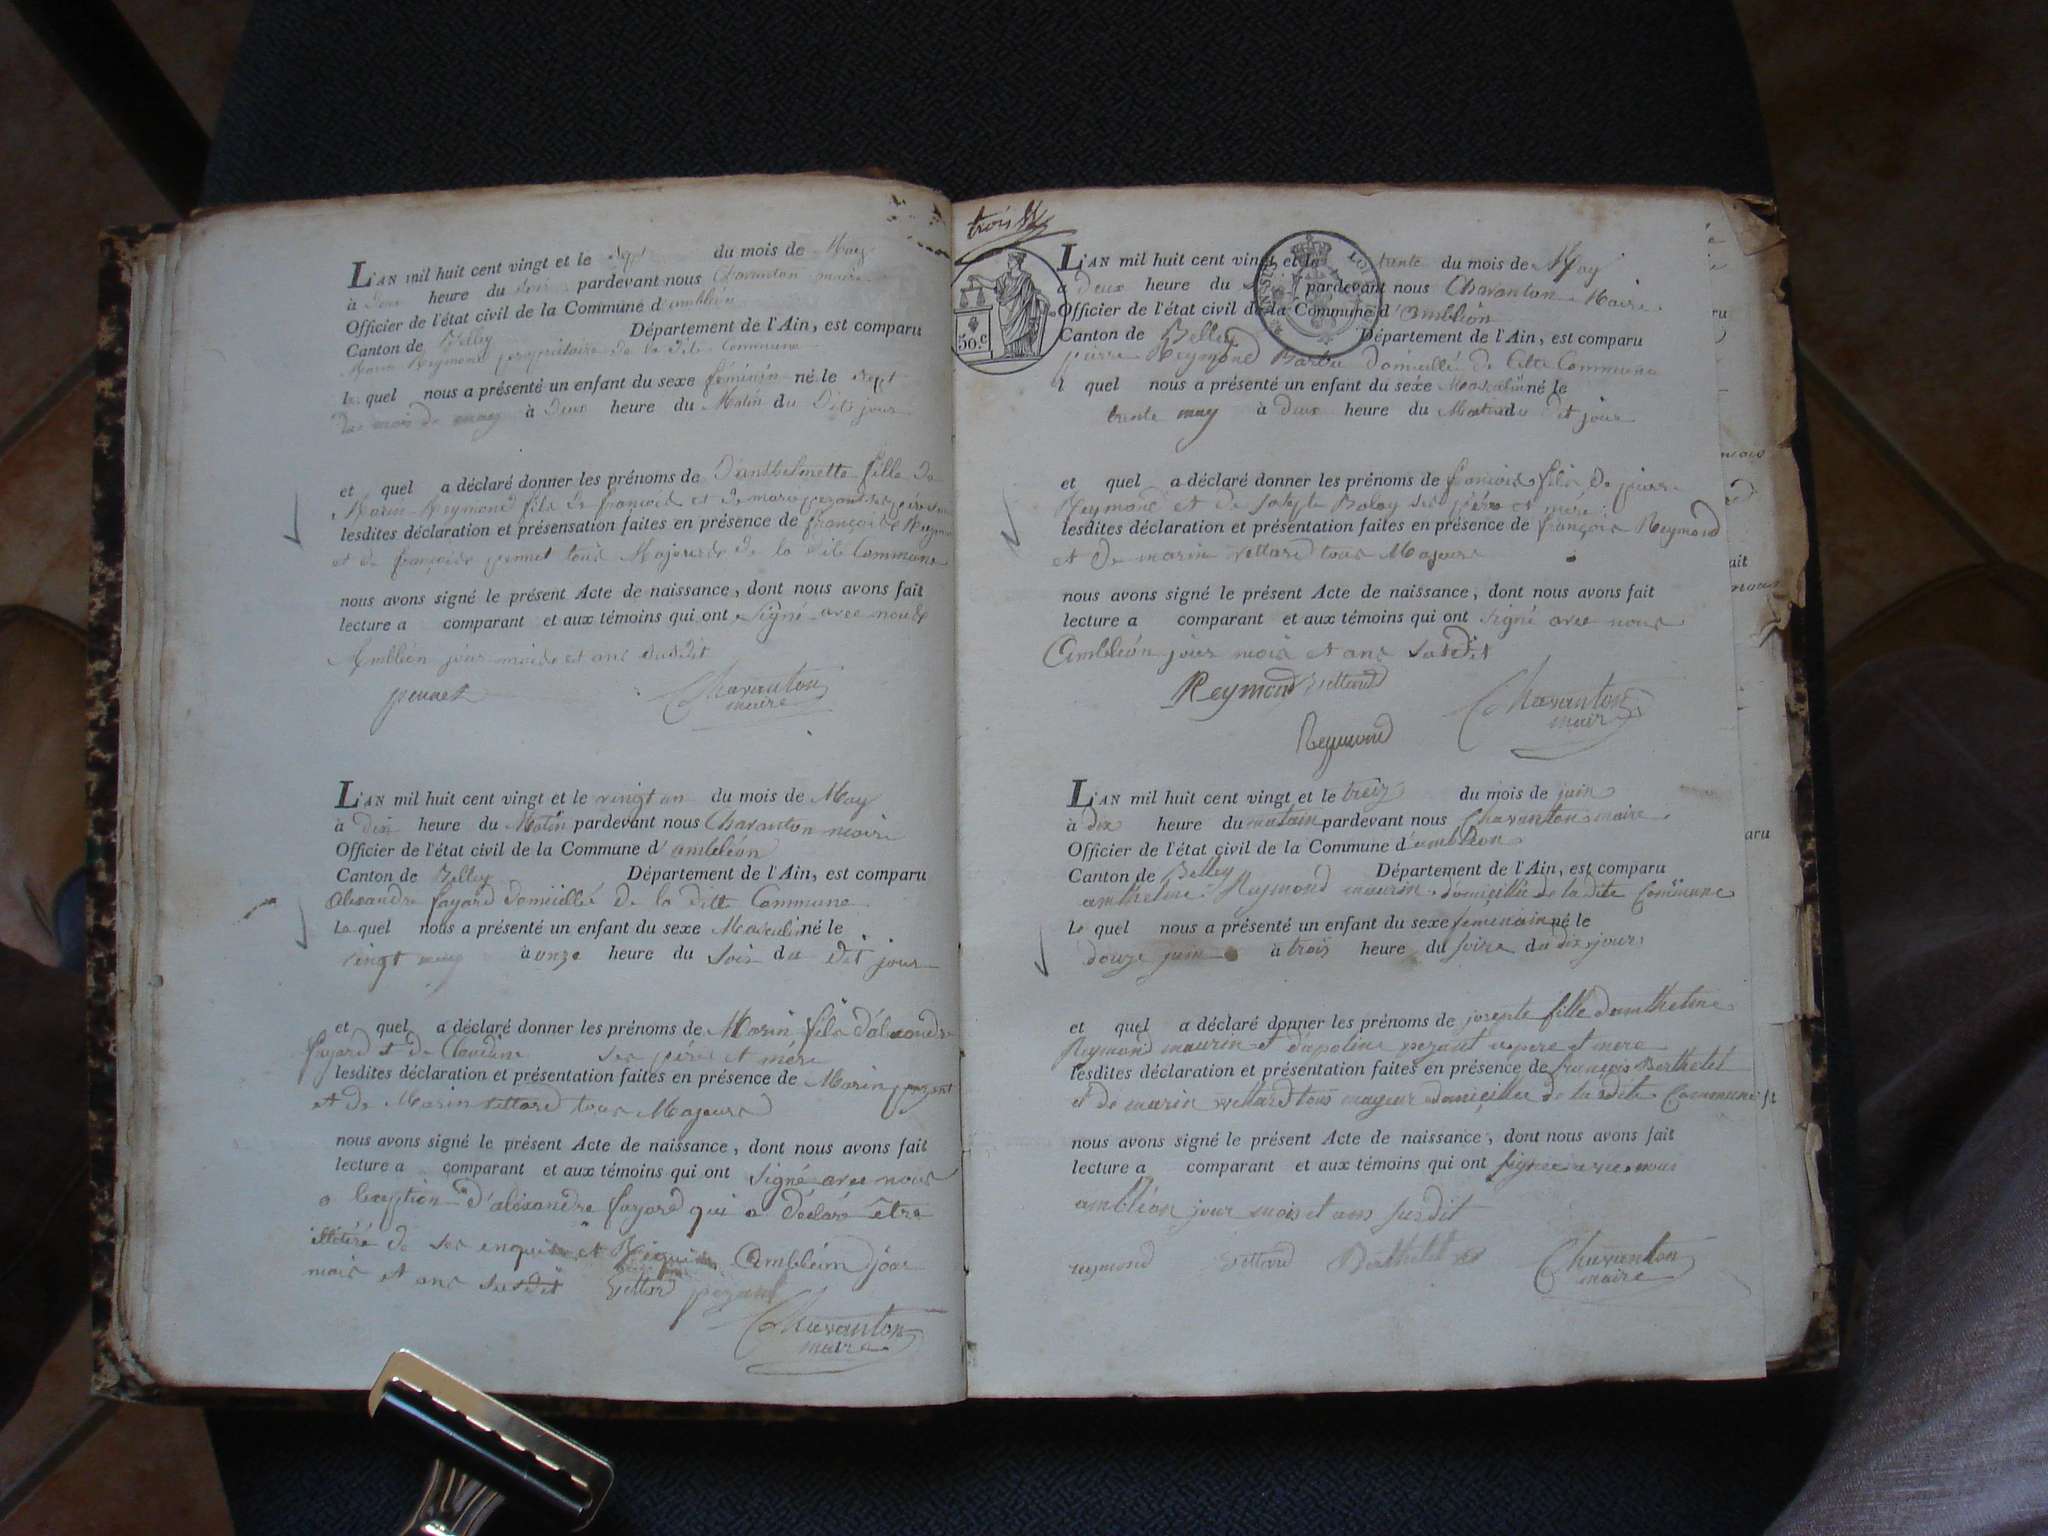 L'AN mil huit cent vingt et le sept du mois de May
à deux heure du soir pardevant nous Chavanton maire
Officier de l'état civil de la Commune d'ambléon
Canton de Belley Département de l'Ain, est comparu
Marin Reymond propriétaire de la dite Commune
Le quel nous a présenté un enfant du sexe féminin né le sept
du mois de may à Deux heure du Matin du Dit jour
et quel a déclaré donner les prénoms de D'anthelmette fille de
Marin Reymond fils de françois et de marie pezant ses père et mère
lesdites déclaration et présensation faites en présence de françois Reymond
et de françois pennet tous Majeurs de la dite Commune
nous avons signé le présent Acte de naissance, dont nous avons fait
lecture a comparant et aux témoins qui ont Signé avec nous
Ambléon jour mois et ans susdit
pennet Chavanton
maire
L'AN mil huit cent vingt et le vingt un du mois de May
à Dix heure du Matin pardevant nous Chavanton maire
Officier de l'état civil de la Commune d'ambléon
Canton de Belley Département de l'Ain, est comparu
Alexandre fayard Domicillié de la ditte Commune
Le quel nous a présenté un enfant du sexe Masculin né le
vingt may à onze heure du Soir du Dit jour
et quel a déclaré donner les prénoms de Marin fils d'alexandre
fayard et de Claudine ses père et mère
lesdites déclaration et présentation faites en présence de Marin pezant
et de Marin vettard tous Majeurs
nous avons signé le présent Acte de naissance, dont nous avons fait
lecture a comparant et aux témoins qui ont Signé avec nous
a lexeption d'alexandre fayard qui a déclaré être
illétéré de ses enquis et Requis Ambléon jour
mois et ans susdit Vettard pezant
Chavanton
maire
trois
50.c
L'AN mil huit cent vingt et le trente du mois de May
à Deux heure du pardevant nous Chavanton Maire
Officier de l'état civil de la Commune d'ambléon
Canton de Belley Département de l'Ain, est comparu
pierre Reymond Barbu domicillié de cette Commune
l quel nous a présenté un enfant du sexe Masculin né le
trente may à deux heure du Matin du dit jour
et quel a déclaré donner les prénoms de françois fils de pierre
Reymond et de Josephte Bolay ses père et mère
lesdites déclaration et présentation faites en présence de françois Reymond
et De marin vettard tous Majeurs
nous avons signé le présent Acte de naissance, dont nous avons fait
lecture a comparant et aux témoins qui ont signé avec nous
Ambléon jour mois et ans susdit
Reymond Vettard Chavanton
maire
Reymond
L'AN mil huit cent vingt et le treiz du mois de juin
à dix heure du matain pardevant nous Chavanton maire
Officier de l'état civil de la Commune d'ambléon
Canton de Belley Département de l'Ain, est comparu
anthelme Reymond maurin domicillie de la dite Commune
Le quel nous a présenté un enfant du sexe feminain né le
douze juin à trois heure du soire du dix jour
et quel a déclaré donner les prénoms de josephte fille d'anthelme
Reymond maurin et d'apoline pezant ces pere et mere
lesdites déclaration et présentation faites en présence de françois Berthelet
et de marin vettard tous majeur domicillie de la dite Commune
nous avons signé le présent Acte de naissance, dont nous avons fait
lecture a comparant et aux témoins qui ont signée avec nous
ambléon jour mois et ans susdit
reymond Vettard Berthelet Chavanton
maire